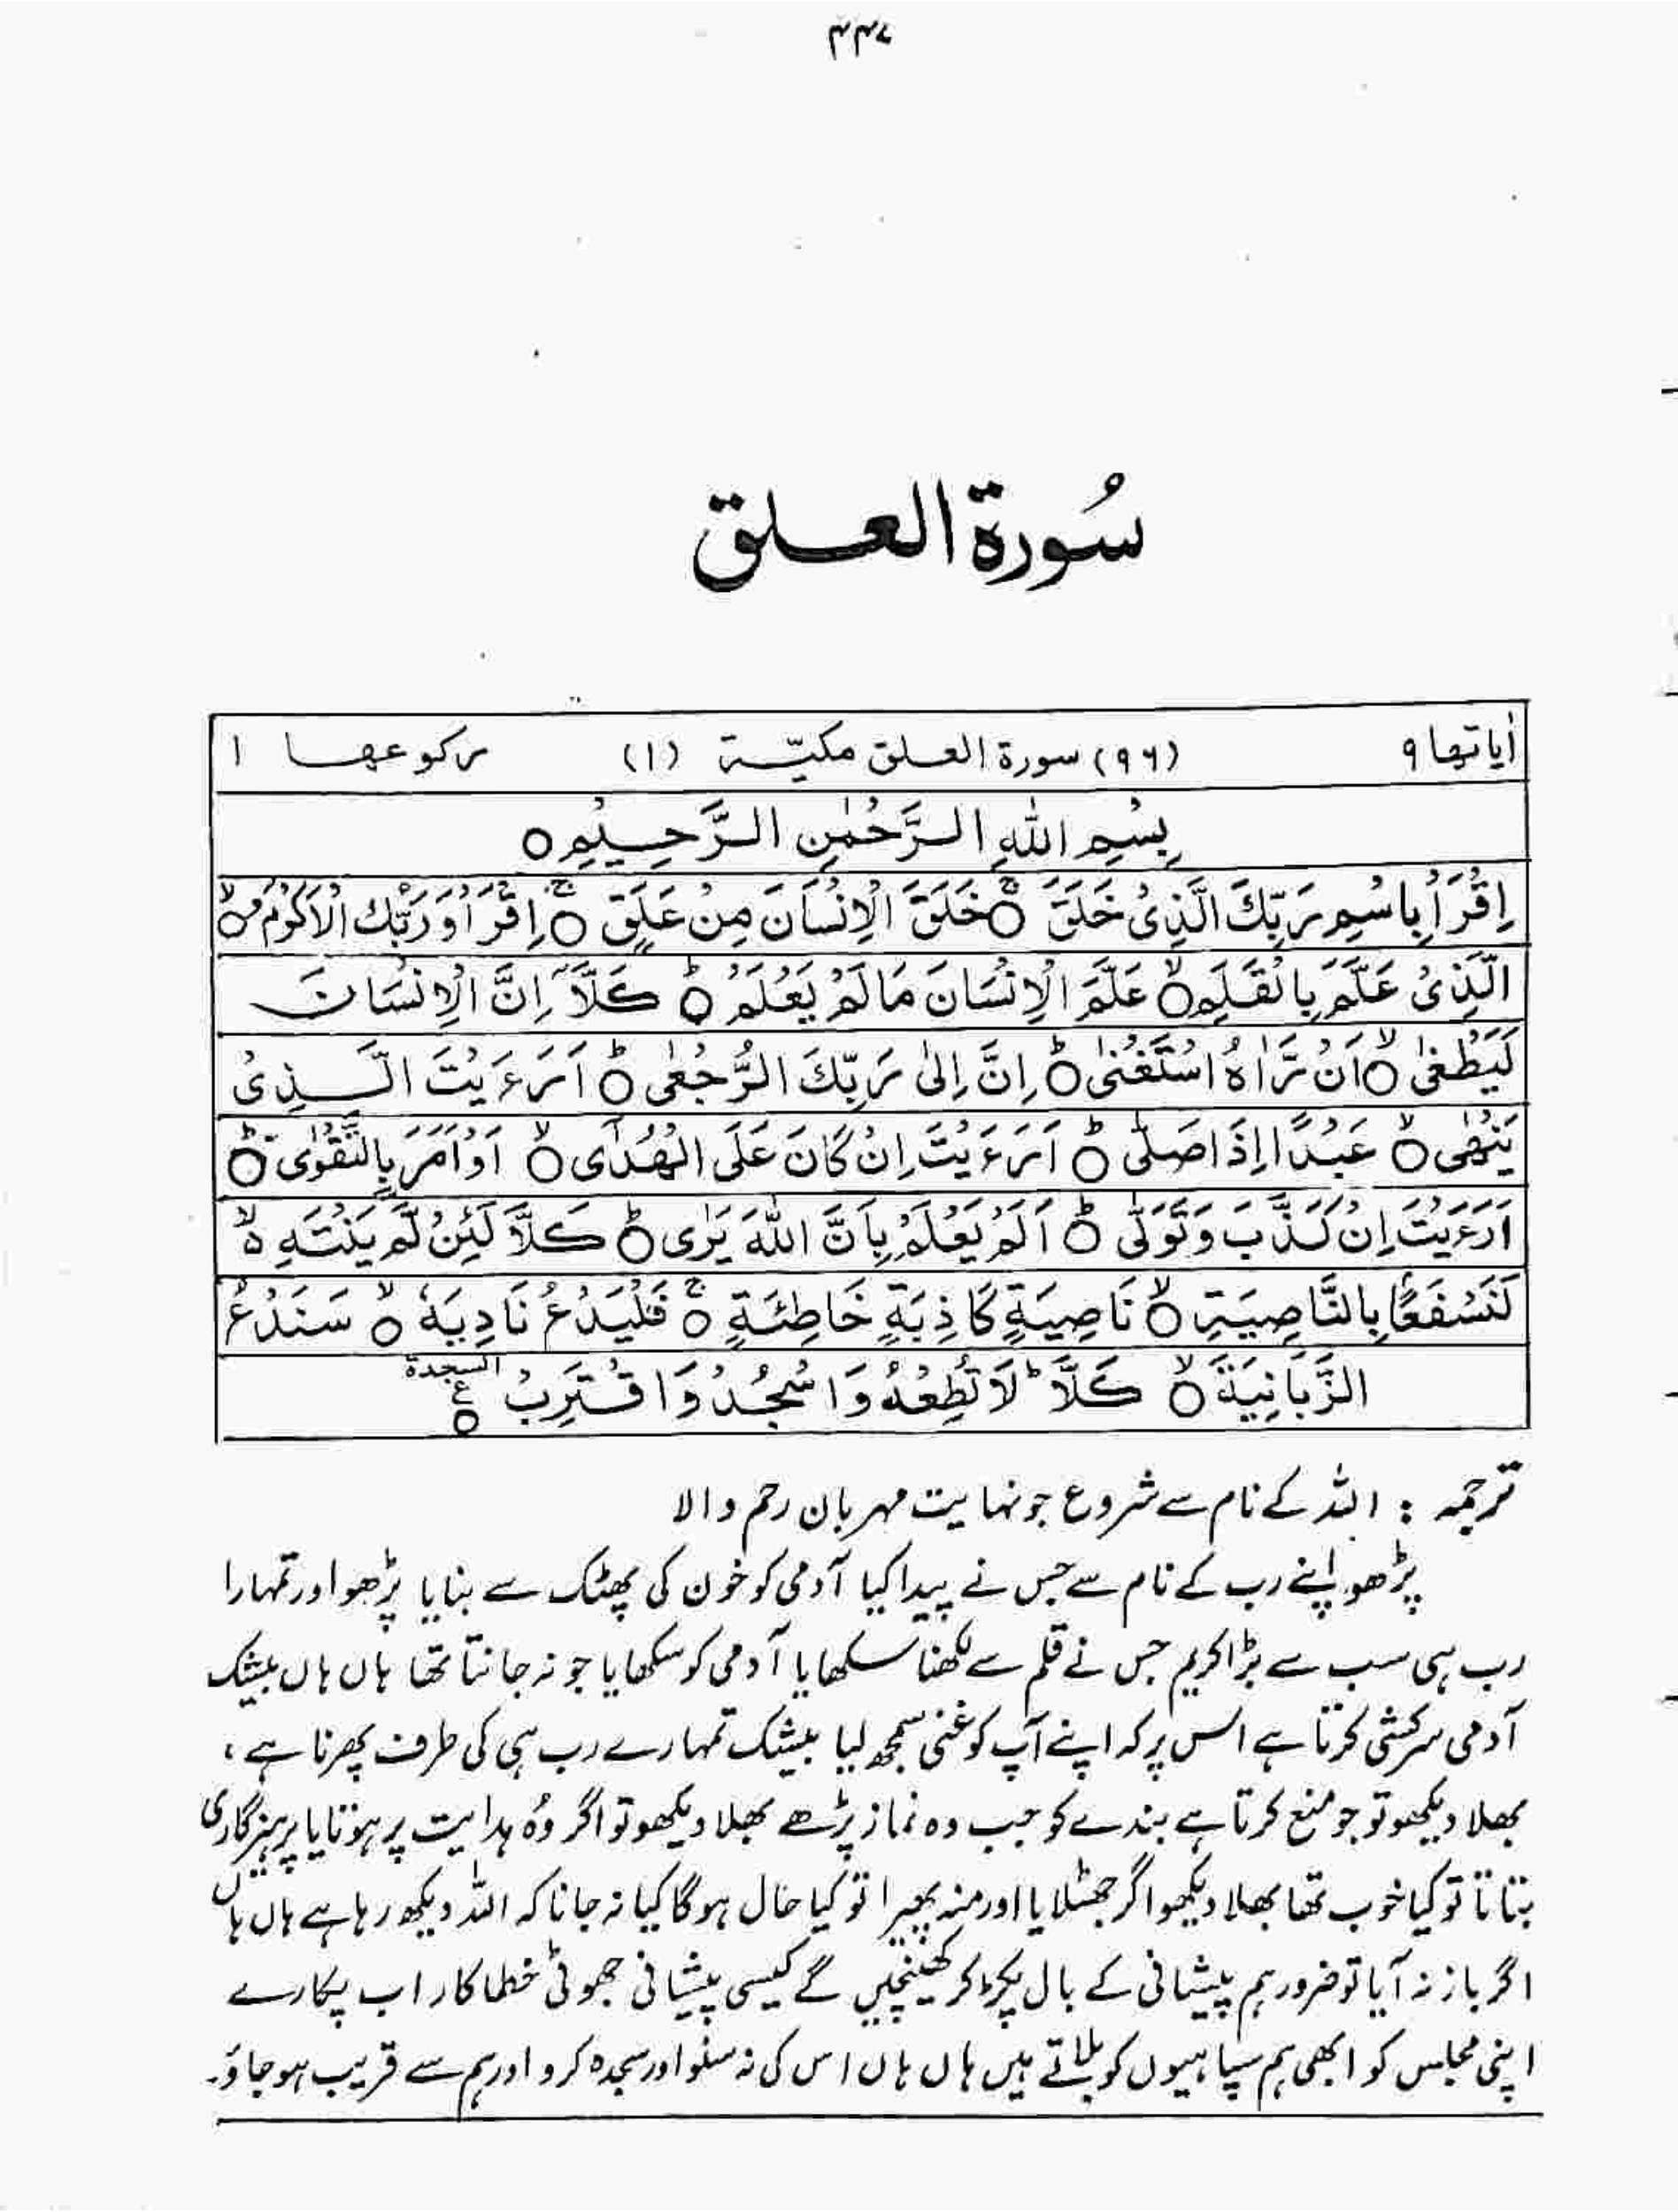 ۴۴۷
سُورة العلق
اٰیاتها ۹ (۹۶) سورة العلق مکیّۃ (۱) رکوعها ۱
بِسْمِ اللّٰهِ الرَّحْمٰنِ الرَّحِیْمِ ○
اِقْرَاْ بِاسْمِ رَبِّكَ الَّذِیْ خَلَقَ ○ۚ خَلَقَ الْاِنْسَانَ مِنْ عَلَقٍ ○ۚ اِقْرَاْ وَرَبُّكَ الْاَكْرَمُ ○ۙ
الَّذِیْ عَلَّمَ بِالْقَلَمِ ○ۙ عَلَّمَ الْاِنْسَانَ مَا لَمْ یَعْلَمْ ○ؕ كَلَّاۤ اِنَّ الْاِنْسَانَ
لَیَطْغٰۤی ○ۙ اَنْ رَّاٰهُ اسْتَغْنٰی ○ؕ اِنَّ اِلٰی رَبِّكَ الرُّجْعٰی ○ؕ اَرَءَیْتَ الَّذِیْ
یَنْهٰی ○ۙ عَبْدًا اِذَا صَلّٰی ○ؕ اَرَءَیْتَ اِنْ كَانَ عَلَی الْهُدٰۤی ○ۙ اَوْ اَمَرَ بِالتَّقْوٰی ○ؕ
اَرَءَیْتَ اِنْ كَذَّبَ وَتَوَلّٰی ○ؕ اَلَمْ یَعْلَمْ بِاَنَّ اللّٰهَ یَرٰی ○ؕ كَلَّا لَئِنْ لَّمْ یَنْتَهِ ○ۙ
لَنَسْفَعًۢا بِالنَّاصِیَةِ ○ۙ نَاصِیَةٍ كَاذِبَةٍ خَاطِئَةٍ ○ۚ فَلْیَدْعُ نَادِیَهٗ ○ۙ سَنَدْعُ
الزَّبَانِیَةَ ○ۙ كَلَّا ؕ لَا تُطِعْهُ وَاسْجُدْ وَاقْتَرِبْ السجدة ع ○
ترجمہ : اللہ کے نام سے شروع جو نہایت مہربان رحم والا
پڑھو اپنے رب کے نام سے جس نے پیدا کیا آدمی کو خون کی پھٹک سے بنایا پڑھو اور تمہارا
رب ہی سب سے بڑا کریم جس نے قلم سے لکھنا سکھایا آدمی کو سکھایا جو نہ جانتا تھا ہاں ہاں بیشک
آدمی سرکشی کرتا ہے اس پر کہ اپنے آپ کو غنی سمجھ لیا بیشک تمہارے رب ہی کی طرف پھرنا ہے ،
بھلا دیکھو تو جو منع کرتا ہے بندے کو جب وہ نماز پڑھے بھلا دیکھو تو اگر وُہ ہدایت پر ہوتا یا پرہیزگاری
بتاتا تو کیا خوب تھا بھلا دیکھو اگر جھٹلایا اور منہ پھیرا تو کیا حال ہوگا کیا نہ جانا کہ اللہ دیکھ رہا ہے ہاں ہاں
اگر باز نہ آیا تو ضرور ہم پیشانی کے بال پکڑ کر کھینچیں گے کیسی پیشانی جھوٹی خطا کار اب پکارے
اپنی مجلس کو ابھی ہم سپاہیوں کو بلاتے ہیں ہاں ہاں اس کی نہ سنو اور سجدہ کرو اور ہم سے قریب ہو جاؤ۔